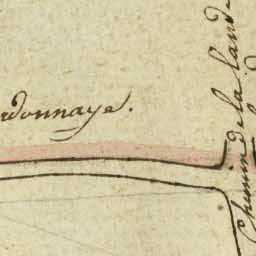 rdonnaye.
Chemin de la land